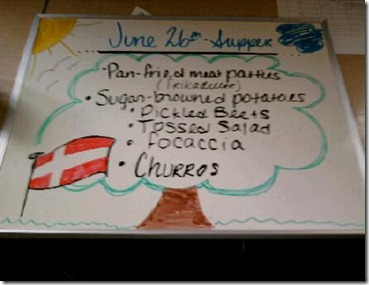 June 26th - Supper
• Pan-fried meat patties
(Frikadeller)
• Sugar-browned potatoes
• Pickled Beets
• Tossed Salad
• Focaccia
• Churros